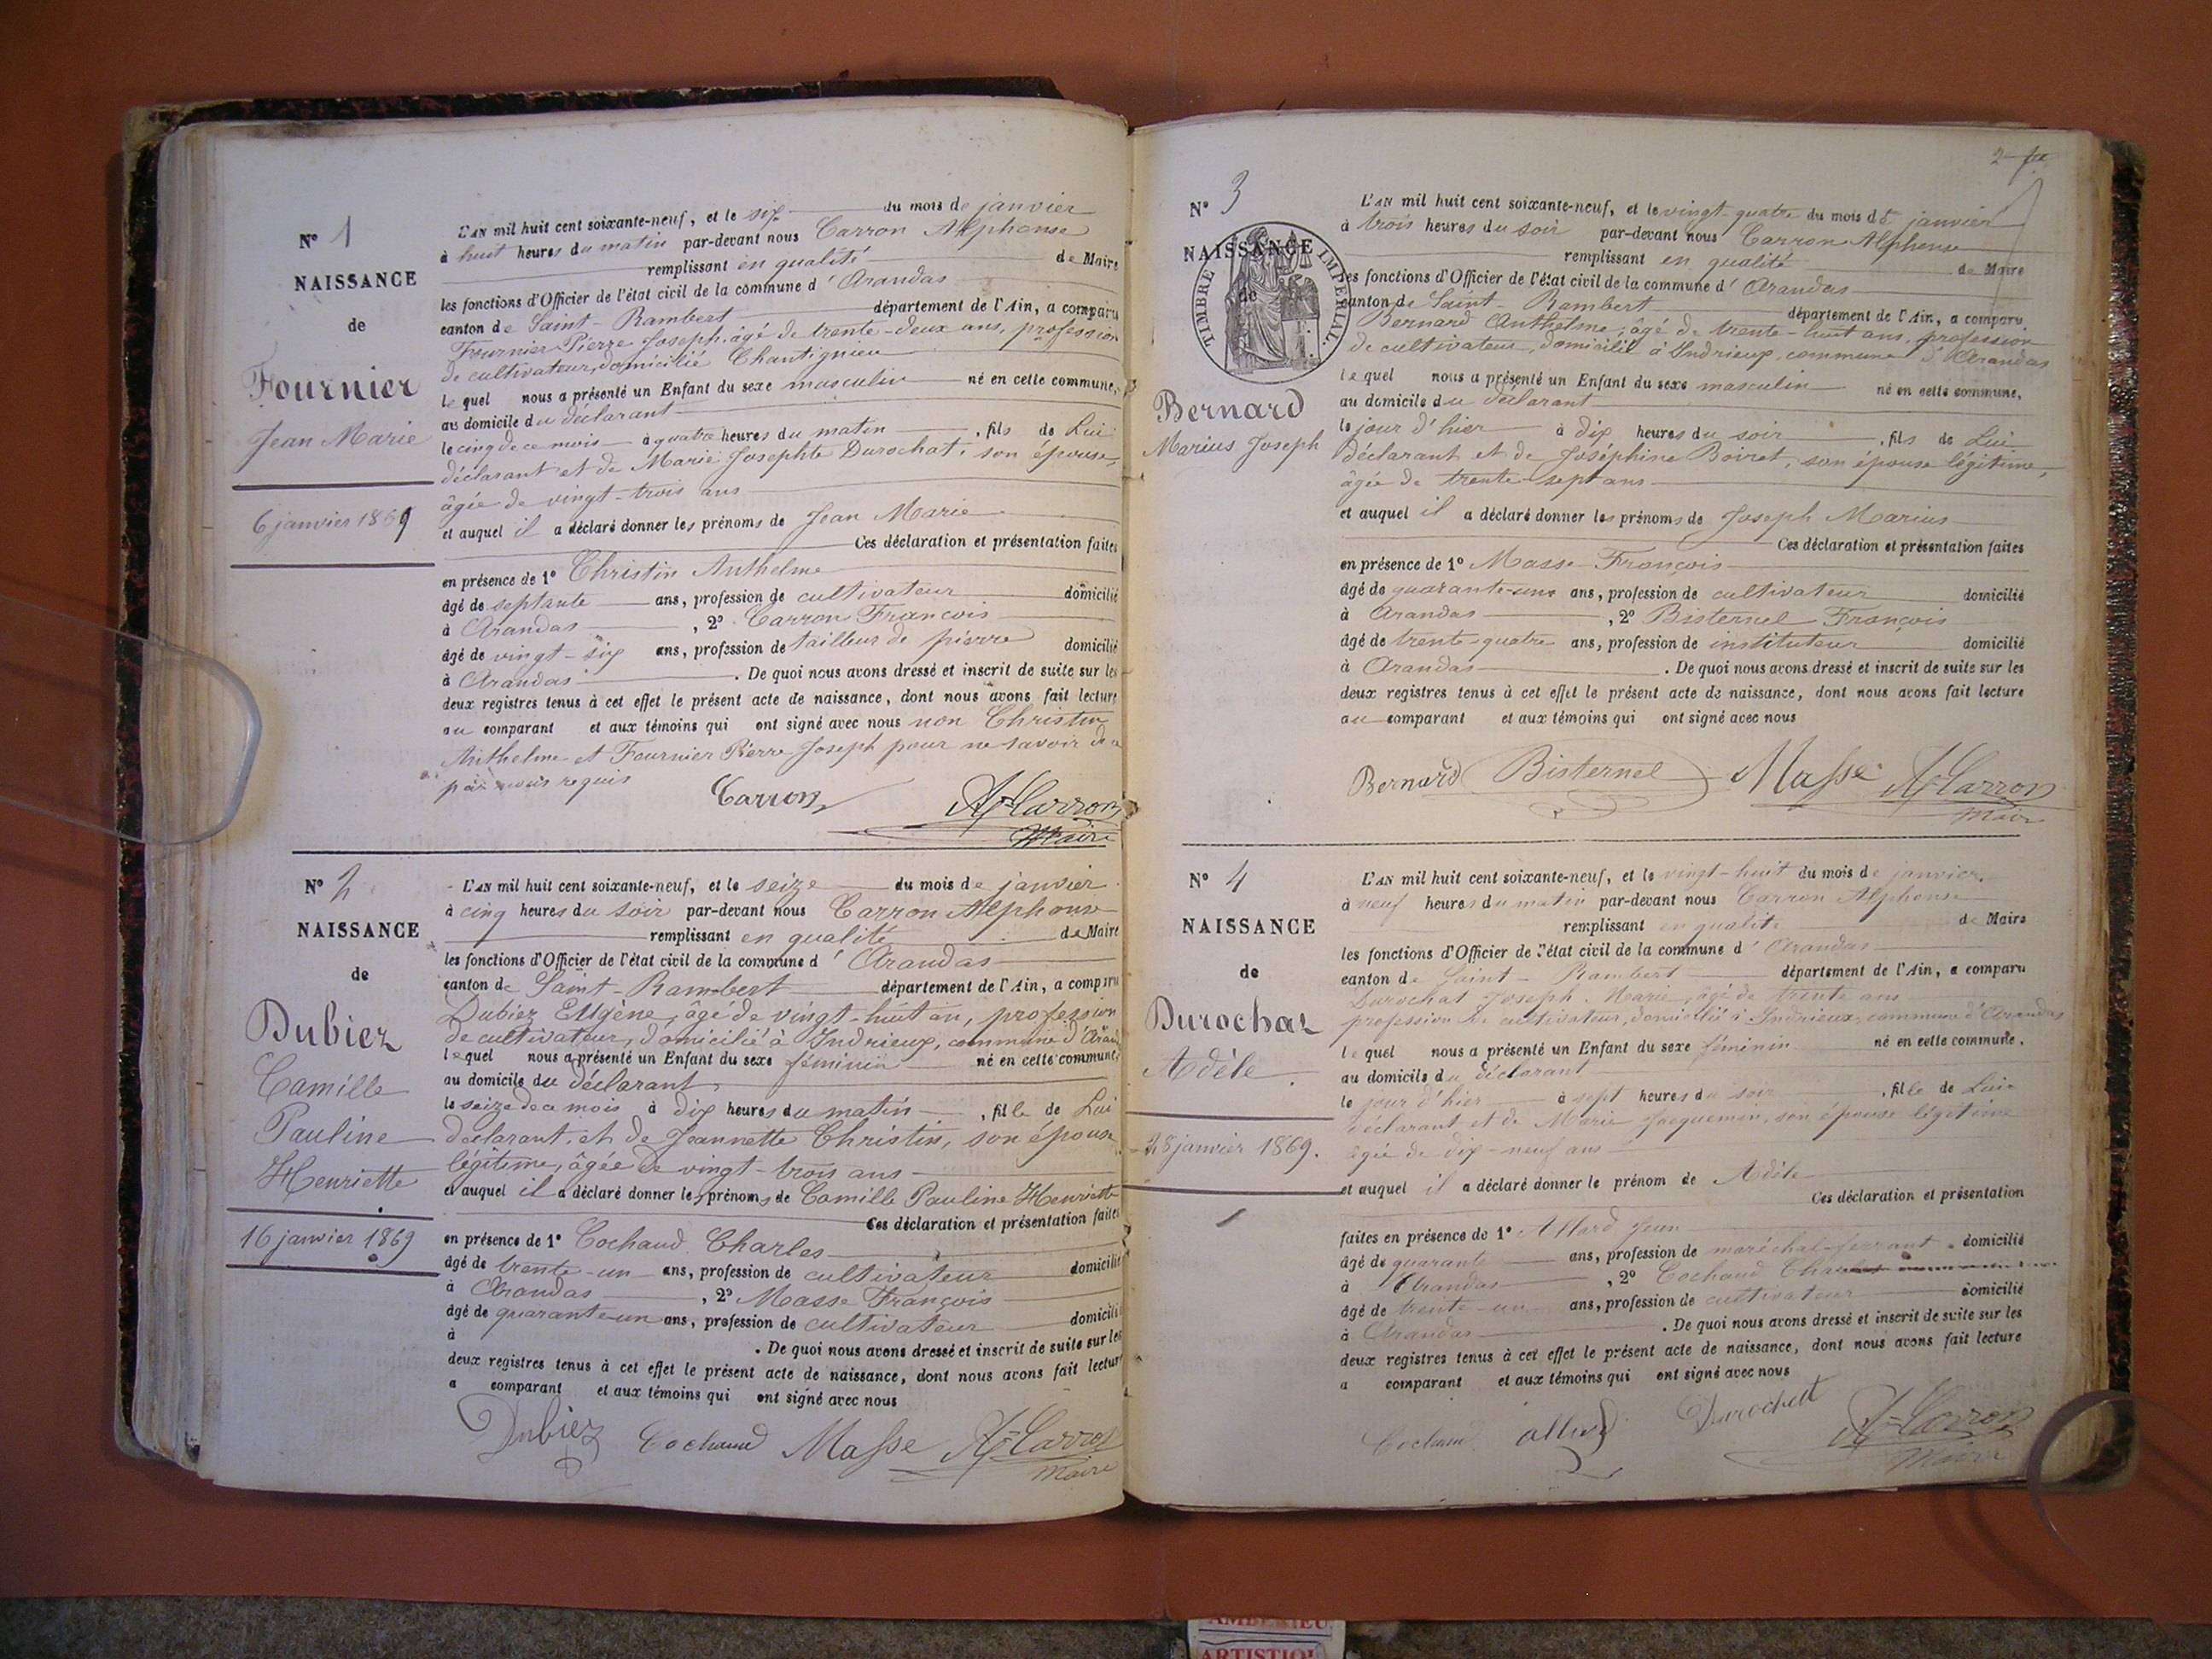 N° 1
NAISSANCE
de
Fournier
Jean Marie
6 janvier 1869
L'AN mil huit cent soixante-neuf, et le six du mois de janvier
à huit heures du matin par-devant nous Carron Alphonse
remplissant en qualité de Maire
les fonctions d'Officier de l'état civil de la commune d'Arandas
canton de Saint-Rambert département de l'Ain, a comparu
Fournier Pierre Joseph, âgé de trente-deux ans, profession
de cultivateur, domicilié Chantignieu
lequel nous a présenté un Enfant du sexe masculin né en cette commune,
au domicile du déclarant
le cinq de ce mois à quatre heures du matin, fils de Lui
déclarant et de Marie Josephte Durochat, son épouse,
âgée de vingt-trois ans
et auquel il a déclaré donner les prénoms de Jean Marie
Ces déclaration et présentation faites
en présence de 1° Christin Anthelme
âgé de septante ans, profession de cultivateur domicilié
à Arandas, 2° Carron François
âgé de vingt-six ans, profession de tailleur de pierre domicilié
à Arandas. De quoi nous avons dressé et inscrit de suite sur les
deux registres tenus à cet effet le présent acte de naissance, dont nous avons fait lecture
au comparant et aux témoins qui ont signé avec nous non Christin
Anthelme et Fournier Pierre Joseph pour ne savoir de ce
par nous requis
Carron A. Carron
Maire
N° 2
NAISSANCE
de
Dubiez
Camille
Pauline
Henriette
16 janvier 1869
L'AN mil huit cent soixante-neuf, et le seize du mois de janvier
à cinq heures du soir par-devant nous Carron Alphonse
remplissant en qualité de Maire
les fonctions d'Officier de l'état civil de la commune d'Arandas
canton de Saint-Rambert département de l'Ain, a comparu
Dubiez Eugène, âgé de vingt-huit an, profession
de cultivateur, domicilié à Indrieux, commune d'Aran
lequel nous a présenté un Enfant du sexe féminin né en cette commune,
au domicile du déclarant
le seize de ce mois à dix heures du matin, fille de Lui
déclarant, et de Jeannette Christin, son épouse
légitime, âgée de vingt-trois ans
et auquel il a déclaré donner les prénoms de Camille Pauline Henriette
Ces déclaration et présentation faites
en présence de 1° Cochaud Charles
âgé de trente-un ans, profession de cultivateur domicilié
à Arandas, 2° Masse François
âgé de quarante-un ans, profession de cultivateur domicilié
à . De quoi nous avons dressé et inscrit de suite sur les
deux registres tenus à cet effet le présent acte de naissance, dont nous avons fait lecture
a comparant et aux témoins qui ont signé avec nous
Dubiez Cochaud Masse A. Carron
Maire
N° 3
NAISSANCE
de
TIMBRE IMPÉRIAL.
Bernard
Marius Joseph
L'AN mil huit cent soixante-neuf, et le vingt-quatre du mois de janvier
à trois heures du soir par-devant nous Carron Alphonse
remplissant en qualité de Maire
les fonctions d'Officier de l'état civil de la commune d'Arandas
canton de Saint-Rambert département de l'Ain, a comparu
Bernard Anthelme, âgé de trente-huit ans, profession
de cultivateur, domicilié à Indrieux, commune d'Arandas
lequel nous a présenté un Enfant du sexe masculin né en cette commune,
au domicile du déclarant
le jour d'hier à dix heures du soir, fils de Lui
déclarant et de Joséphine Boiret, son épouse légitime,
âgée de trente-sept ans
et auquel il a déclaré donner les prénoms de Joseph Marius
Ces déclaration et présentation faites
en présence de 1° Masse François
âgé de quarante-uns ans, profession de cultivateur domicilié
à Arandas, 2° Bisternel François
âgé de trente-quatre ans, profession de instituteur domicilié
à Arandas. De quoi nous avons dressé et inscrit de suite sur les
deux registres tenus à cet effet le présent acte de naissance, dont nous avons fait lecture
au comparant et aux témoins qui ont signé avec nous
Bernard Bisternel Masse A. Carron
Maire
N° 4
NAISSANCE
de
Durochat
Adèle
28 janvier 1869.
L'AN mil huit cent soixante-neuf, et le vingt-huit du mois de janvier.
à neuf heures du matin par-devant nous Carron Alphonse
remplissant en qualité de Maire
les fonctions d'Officier de l'état civil de la commune d'Arandas
canton de Saint-Rambert département de l'Ain, a comparu
Durochat Joseph Marie, âgé de trente ans
profession de cultivateur, domicilié à Indrieux, commune d'Arandas
lequel nous a présenté un Enfant du sexe féminin né en cette commune,
au domicile du déclarant
le jour d'hier à sept heures du soir, fille de Lui
déclarant et de Marie Jacquemin, son épouse légitime
âgée de dix-neuf ans
et auquel il a déclaré donner le prénom de Adèle
Ces déclaration et présentation
faites en présence de 1° Allard Jean
âgé de quarante ans, profession de maréchal-ferrant domicilié
à Arandas, 2° Cochaud Charles
âgé de trente-un ans, profession de cultivateur domicilié
à Arandas. De quoi nous avons dressé et inscrit de suite sur les
deux registres tenus à cet effet le présent acte de naissance, dont nous avons fait lecture
a comparant et aux témoins qui ont signé avec nous
Cochaud allard Durochat A. Carron
Maire